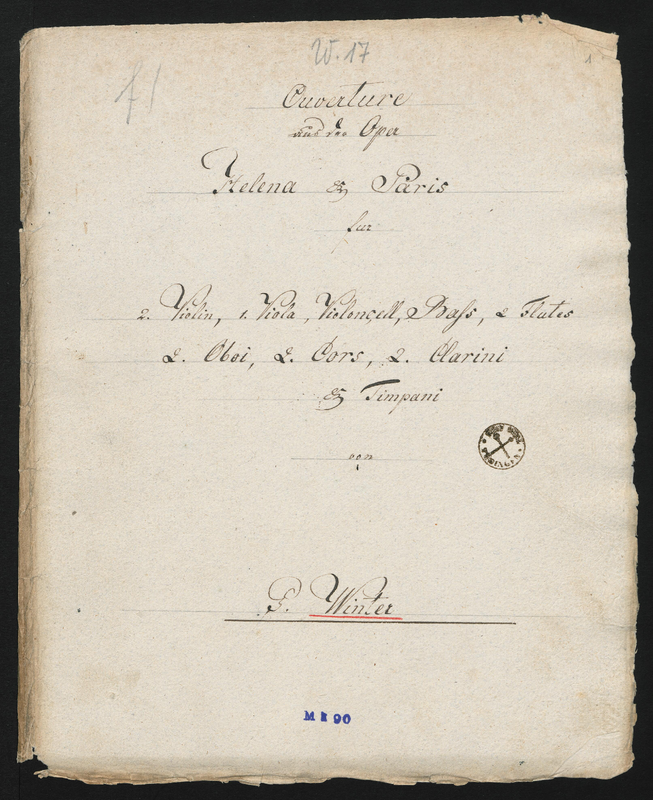 W. 17
1
Ouverture
aus der Oper
Helena & Paris
fur
2. Violin, 1. Viola, Violoncell, Bass, 2 Flutes
2. Oboi, 2. Cors, 2. Clarini
& Timpani
von
P. Winter
M 90